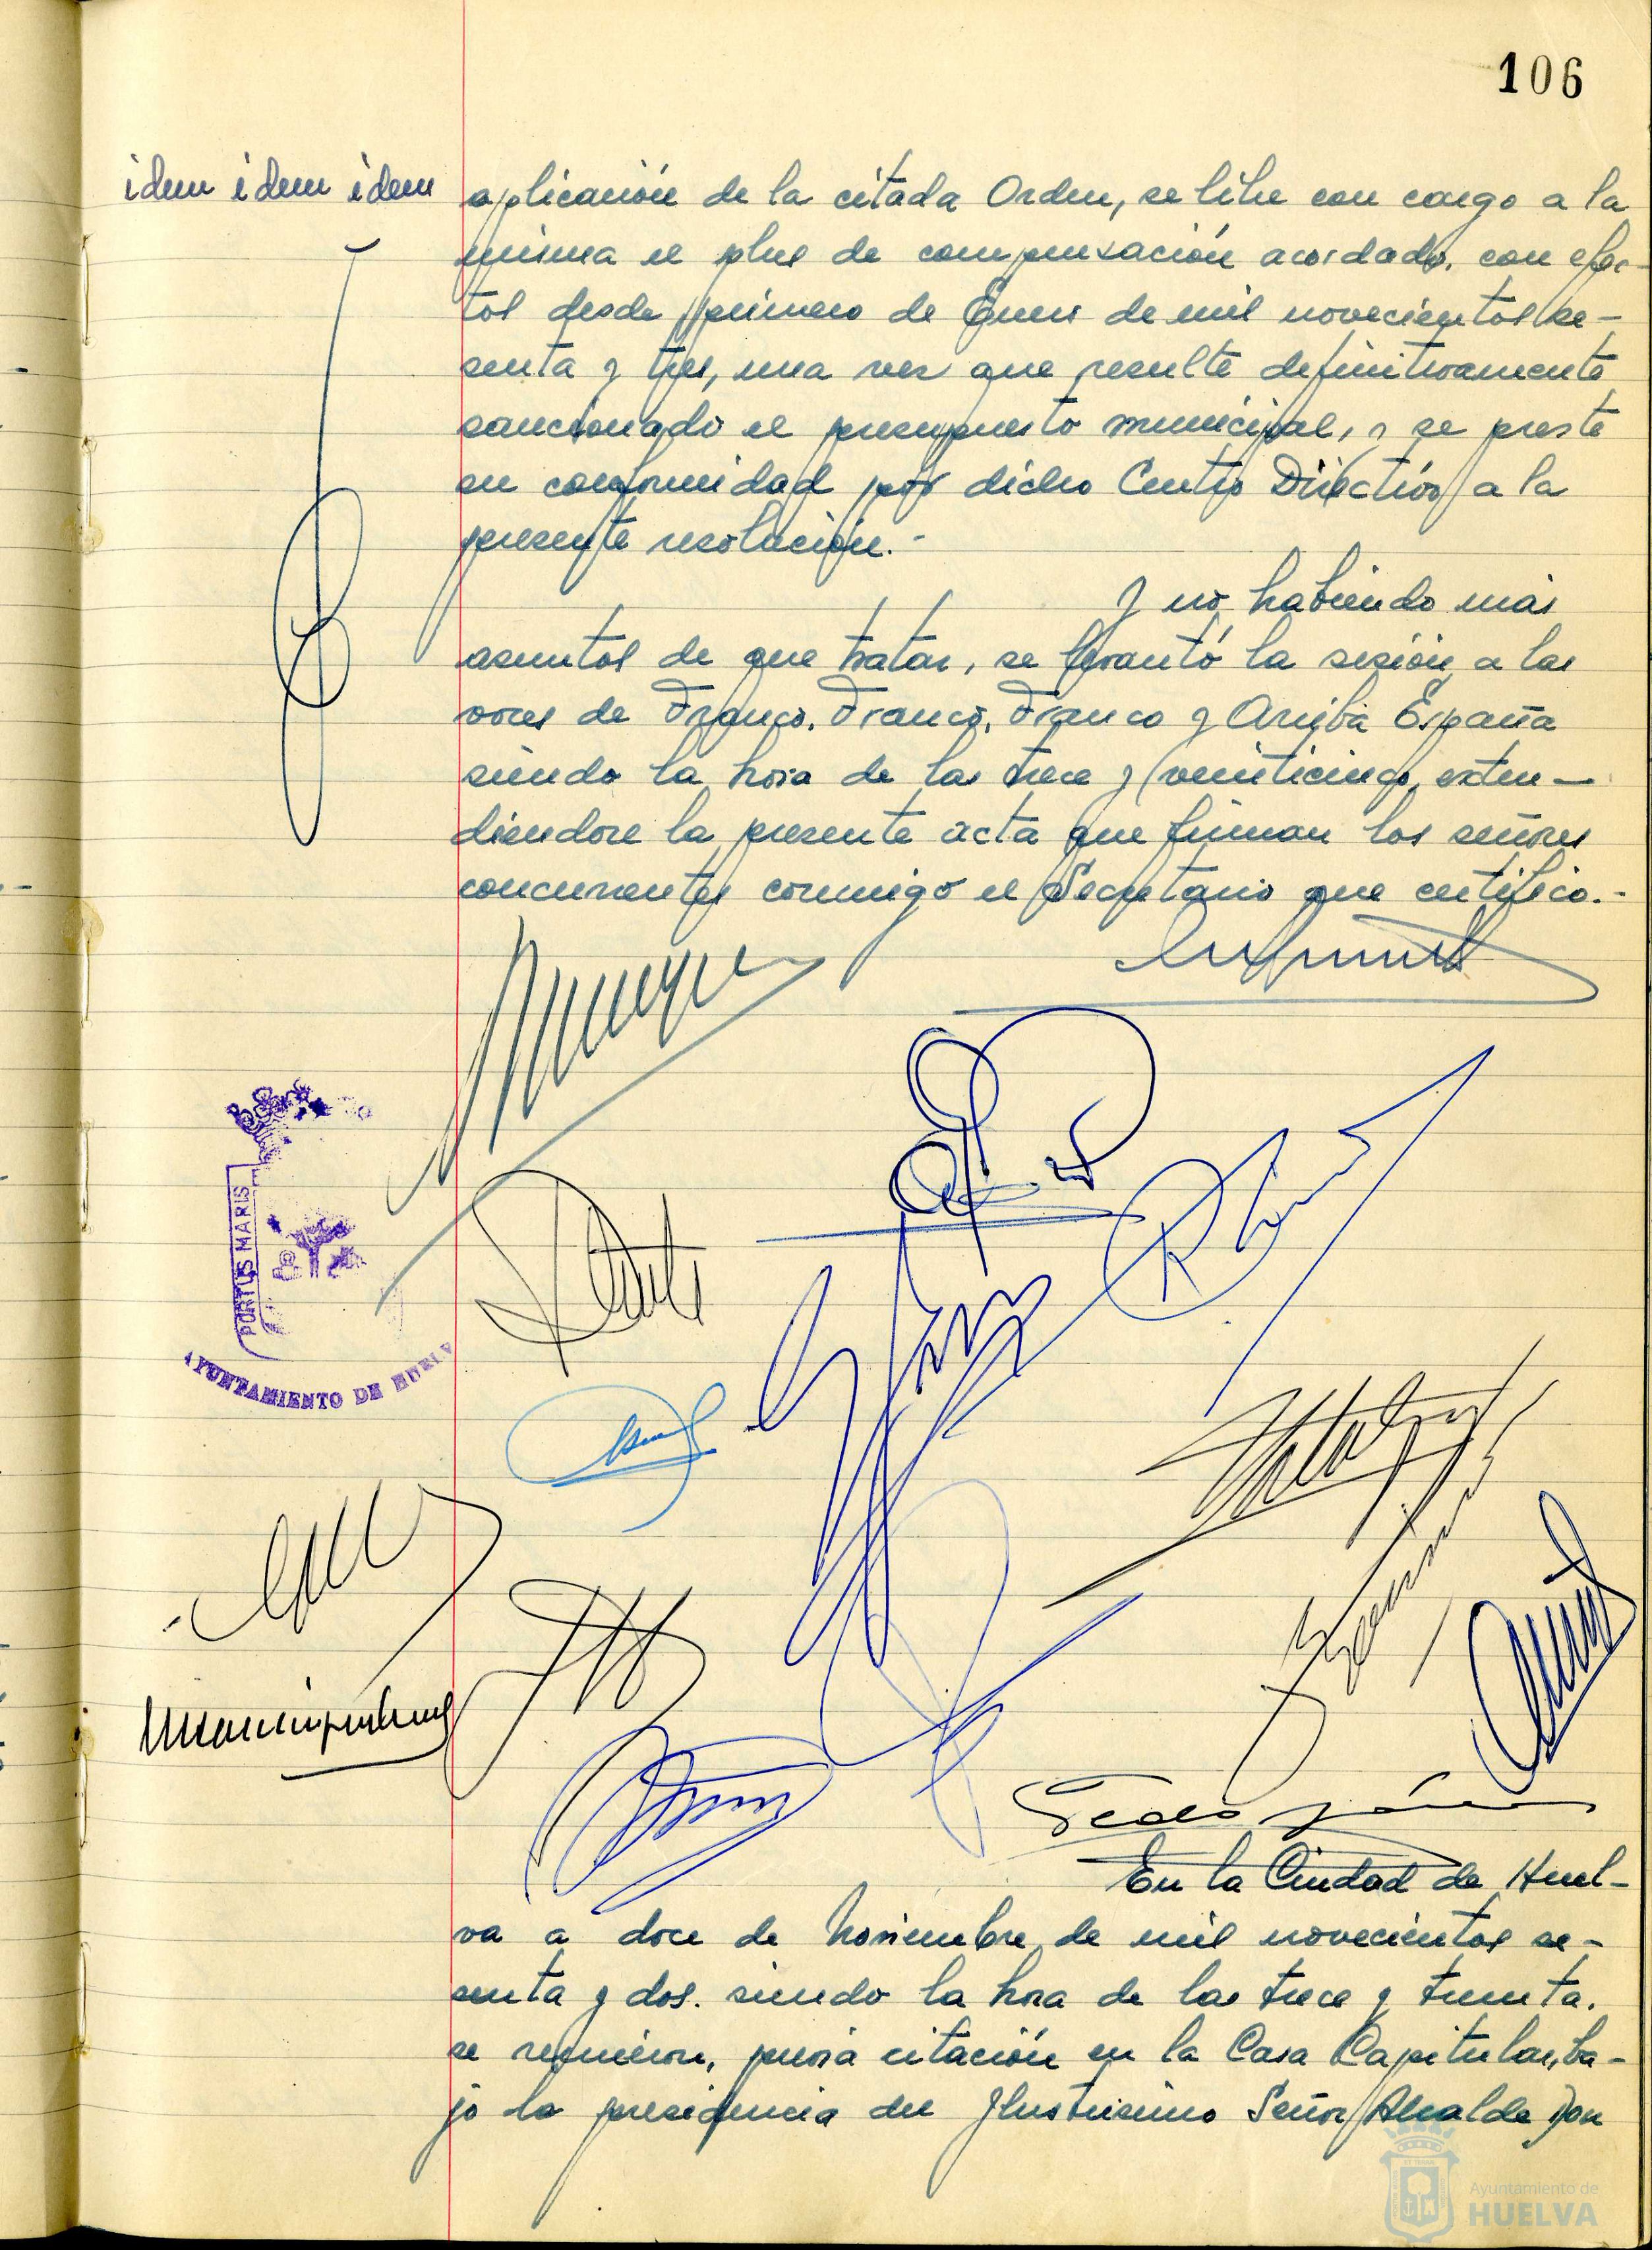 106
idem idem idem
aplicación de la citada Orden, se libre con cargo a la
misma el plus de compensación acordado, con efec-
tos desde primero de Enero de mil novecientos se-
senta y tres, una vez que resulte definitivamente
sancionado el presupuesto municipal, y se preste
su conformidad por dicho Centro Directivo a la
presente resolución.-
Y no habiendo más
asuntos de que tratar, se levantó la sesión a las
voces de Franco, Franco, Franco y Arriba España
siendo la hora de las trece y veinticinco, exten-
diéndose la presente acta que firman los señores
concurrentes conmigo el Secretario que certifico.-
PORTUS MARIS
AYUNTAMIENTO DE HUELV
En la Ciudad de Huel-
va a doce de Noviembre de mil novecientos se-
senta y dos. siendo la hora de las trece y treinta,
se reunieron, previa citación en la Casa Capitular, ba-
jo la presidencia del Ilustrísimo Señor Alcalde Don
Ayuntamiento de
HUELVA